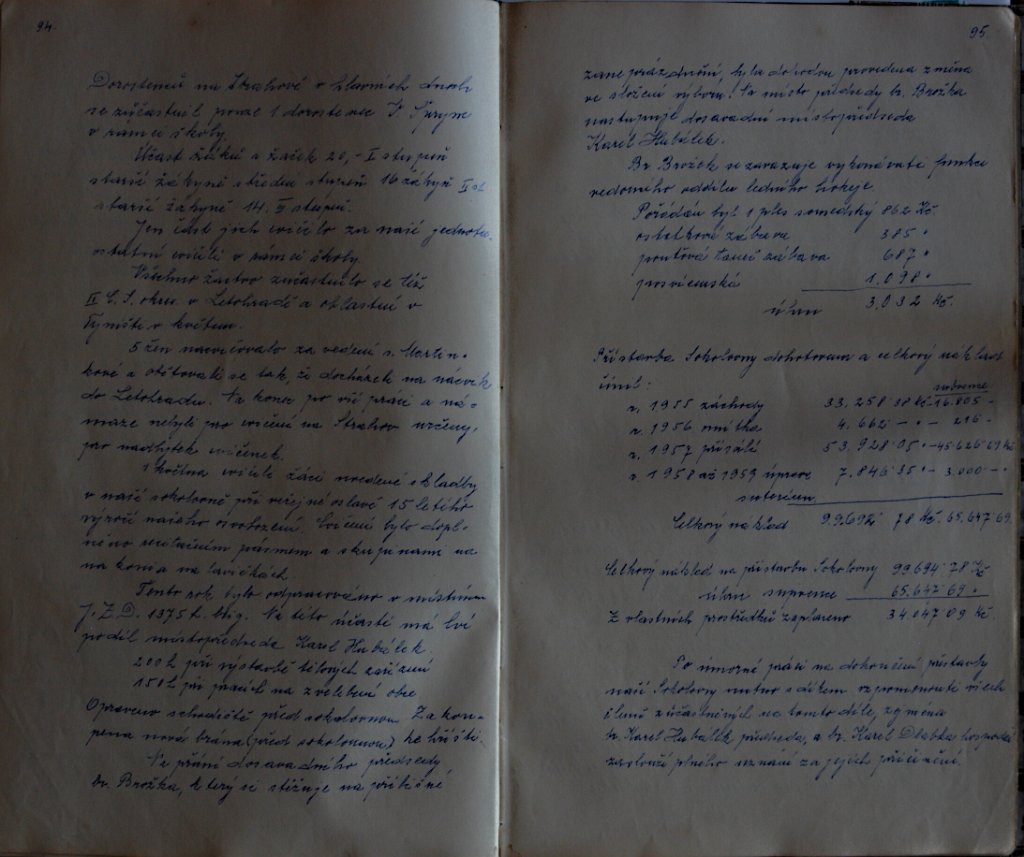 94
Dorostenců na Strahově v hlavních dnech
se zúčastnil pouze 1 dorostenec
v rámci školy.
Účast žáků a žaček 20,- I stupeň
starší žákyně střední stupeň 16 žákyň II st.
starší žákyně 14. II stupeň.
Jen část jich cvičilo za naší jednotu
ostatní cvičili v rámci školy.
Všechno žactvo zúčastnilo se též
II C. S. okrs. v Letohradě a oblastní v
Týništi v květnu.
5 žen nacvičovalo za vedení s.
kové a obětovali se tak, že docházeli na nácvik
do Letohradu. Na konec po vší práci a ná-
maze nebyli pro cvičení na Strahov určeny,
pro nadbytek cvičenek.
1 května cvičili žáci uvedené skladby
v naší sokolovně při veřejné oslavě 15 letého
výročí našeho osvobození. Cvičení bylo dopl-
něno recitačním pásmem a skupinami na
na koni a na lavičkách.
Tento rok bylo odpracováno v místním
J. Z. D. 1375 h. brig. Na této účasti má lví
podíl místopředseda Karel Hubálek.
200 h při výstavbě tělových zařízení
150 h při pracích na zvelebení obce
Opraveno schodiště před sokolovnou. Zakou-
pena nová brána (před sokolovnou) ke hřišti.
Na přání dosavadního předsedy
br. Brožka, který si stěžuje na přílišné
95
zaneprázdnění, byla dohodou provedena změna
ve složení výboru! Na místo předsedy br. Brožka
nastupuje dosavadní místopředseda
Karel Hubálek.
Br. Brožek se zavazuje vykonávati funkci
vedoucího oddílu ledního hokeje.
Pořádán byl 1 ples sousedský 862 Kč.
ostatková zábava 385 "
pouťová taneč zábava 687 "
posvícenská 1.098 "
úhrn 3.032 Kč.
Přístavba Sokolovny dohotovena a celkový náklad
činil:
r. 1955 záchody 33.258.38 Kč 16.805 -
r. 1956 omítka 4.662 - " - 216 -
r. 1957 přísálí 53.928.05 " - 45.626.69 Kč
r. 1958 až 1959 úprava 7.846.35 " - 3.000 - "
Celkový náklad 99.692 78 Kč. 65.647.69.
Celkový náklad na přístavbu Sokolovny 99 694.78 Kč
úhrn 65.647 69 "
Z vlastních prostředků zaplaceno 34.047 09 Kč.
Po úmorné práci na dokončení přístavby
naší Sokolovny nutno s díkem vzpomenouti všech
členů zúčastněných na tomto díle, zejména
br. Karel Hubálek, předseda, a br. Karel Dlabka hospodář
zaslouží plného uznání za jejich přičinění.